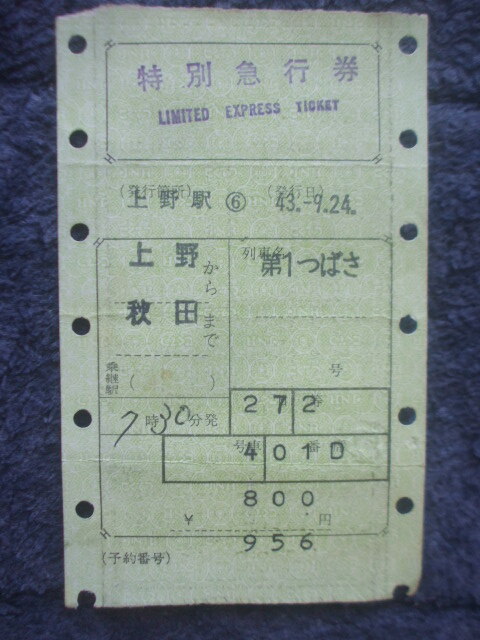 特別急行券
LIMITED EXPRESS TICKET
(発行箇所) (発行日)
上野駅⑥ 43.-9.24.
上野から 列車名
第1つばさ
秋田まで
号
乗継駅( )
7時30分発 272
号車 401D
800
¥ 円
956
(予約番号)